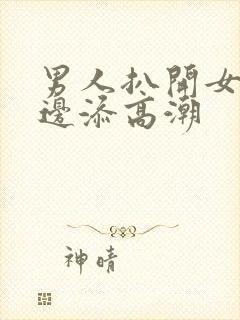 男人扒開女
邊添高潮
神晴